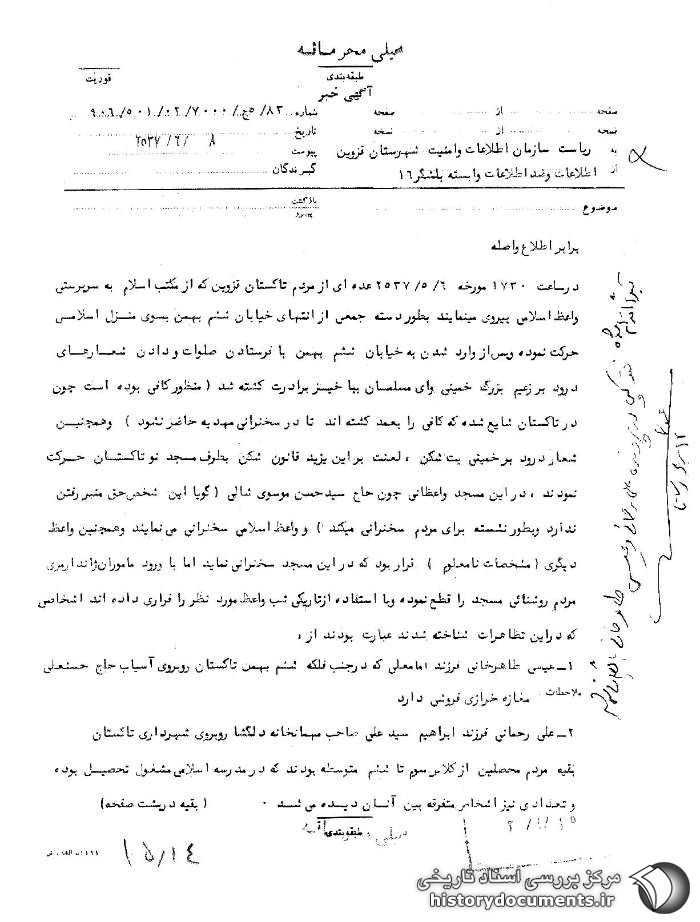 خیلی محرمانه
طبقه‌بندی
فوریت
آگهی خبر
صفحه از صفحه شماره
نسخه از نسخه تاریخ ۲۵۳۷/۶/۸
به ریاست سازمان اطلاعات وامنیت شهرستان قزوین پیوست
از اطلاعات وضد اطلاعات وابسته بلشگر۱۶ گیرندگان
موضوع بازگشت
برابر اطلاع واصله
درساعت ۱۷۳۰ مورخه ۲۵۳۷/۵/۶ عده ای از مردم تاکستان قزوین که از مکتب اسلام به سرپرستی
واعظ اسلامی پیروی مینمایند بطور دسته جمعی از انتهای خیابان ششم بهمن بسوی منزل اسلامی
حرکت نموده وپس از وارد شدن به خیابان ششم بهمن با فرستادن صلوات و دادن شعارهای
درود بر زعیم بزرگ خمینی وای مسلمان بپا خیز برادرت کشته شد ( منظور کافی بوده است چون
در تاکستان شایع شده که کافی را بعمد کشته اند تا در سخنرانی مهدیه حاضر نشود ) وهمچنین
شعار درود بر خمینی بت شکن ، لعنت بر این یزید قانون شکن بطرف مسجد نو تاکستان حرکت
نمودند ، در این مسجد واعظانی چون حاج سید حسن موسوی شالی ( گویا این شخص حق منبر رفتن
ندارد وبطور نشسته برای مردم سخنرانی میکند ) و واعظ اسلامی سخنرانی می نمایند وهمچنین واعظ
دیگری ( مشخصات نامعلوم ) قرار بود که در این مسجد سخنرانی نماید اما با ورود ماموران ژاندارمری
مردم روشنائی مسجد را قطع نموده وبا استفاده از تاریکی شب واعظ مورد نظر را فراری داده اند اشخاصی
که در این تظاهرات شناخته شدند عبارت بودند از :
۱ــ عیسی طاهرخانی فرزند امامعلی که درجنب فلکه ششم بهمن تاکستان روبروی آسیاب حاج حسنعلی
ملاحظات مغازه خرازی فروشی دارد
۲ــ علی رحمانی فرزند ابراهیم سید علی صاحب مهمانخانه دلگشا روبروی شهرداری تاکستان
بقیه مردم محصلین از کلاس سوم تا ششم متوسطه بودند که در مدرسه اسلامی مشغول تحصیل بوده
و تعدادی نیز اشخاص متفرقه بین آنان دیده می شد ۰ ( بقیه در پشت صفحه )
طبقه‌بندی
۱۵/۱۴
مرکز بررسی اسناد تاریخی
historydocuments.ir